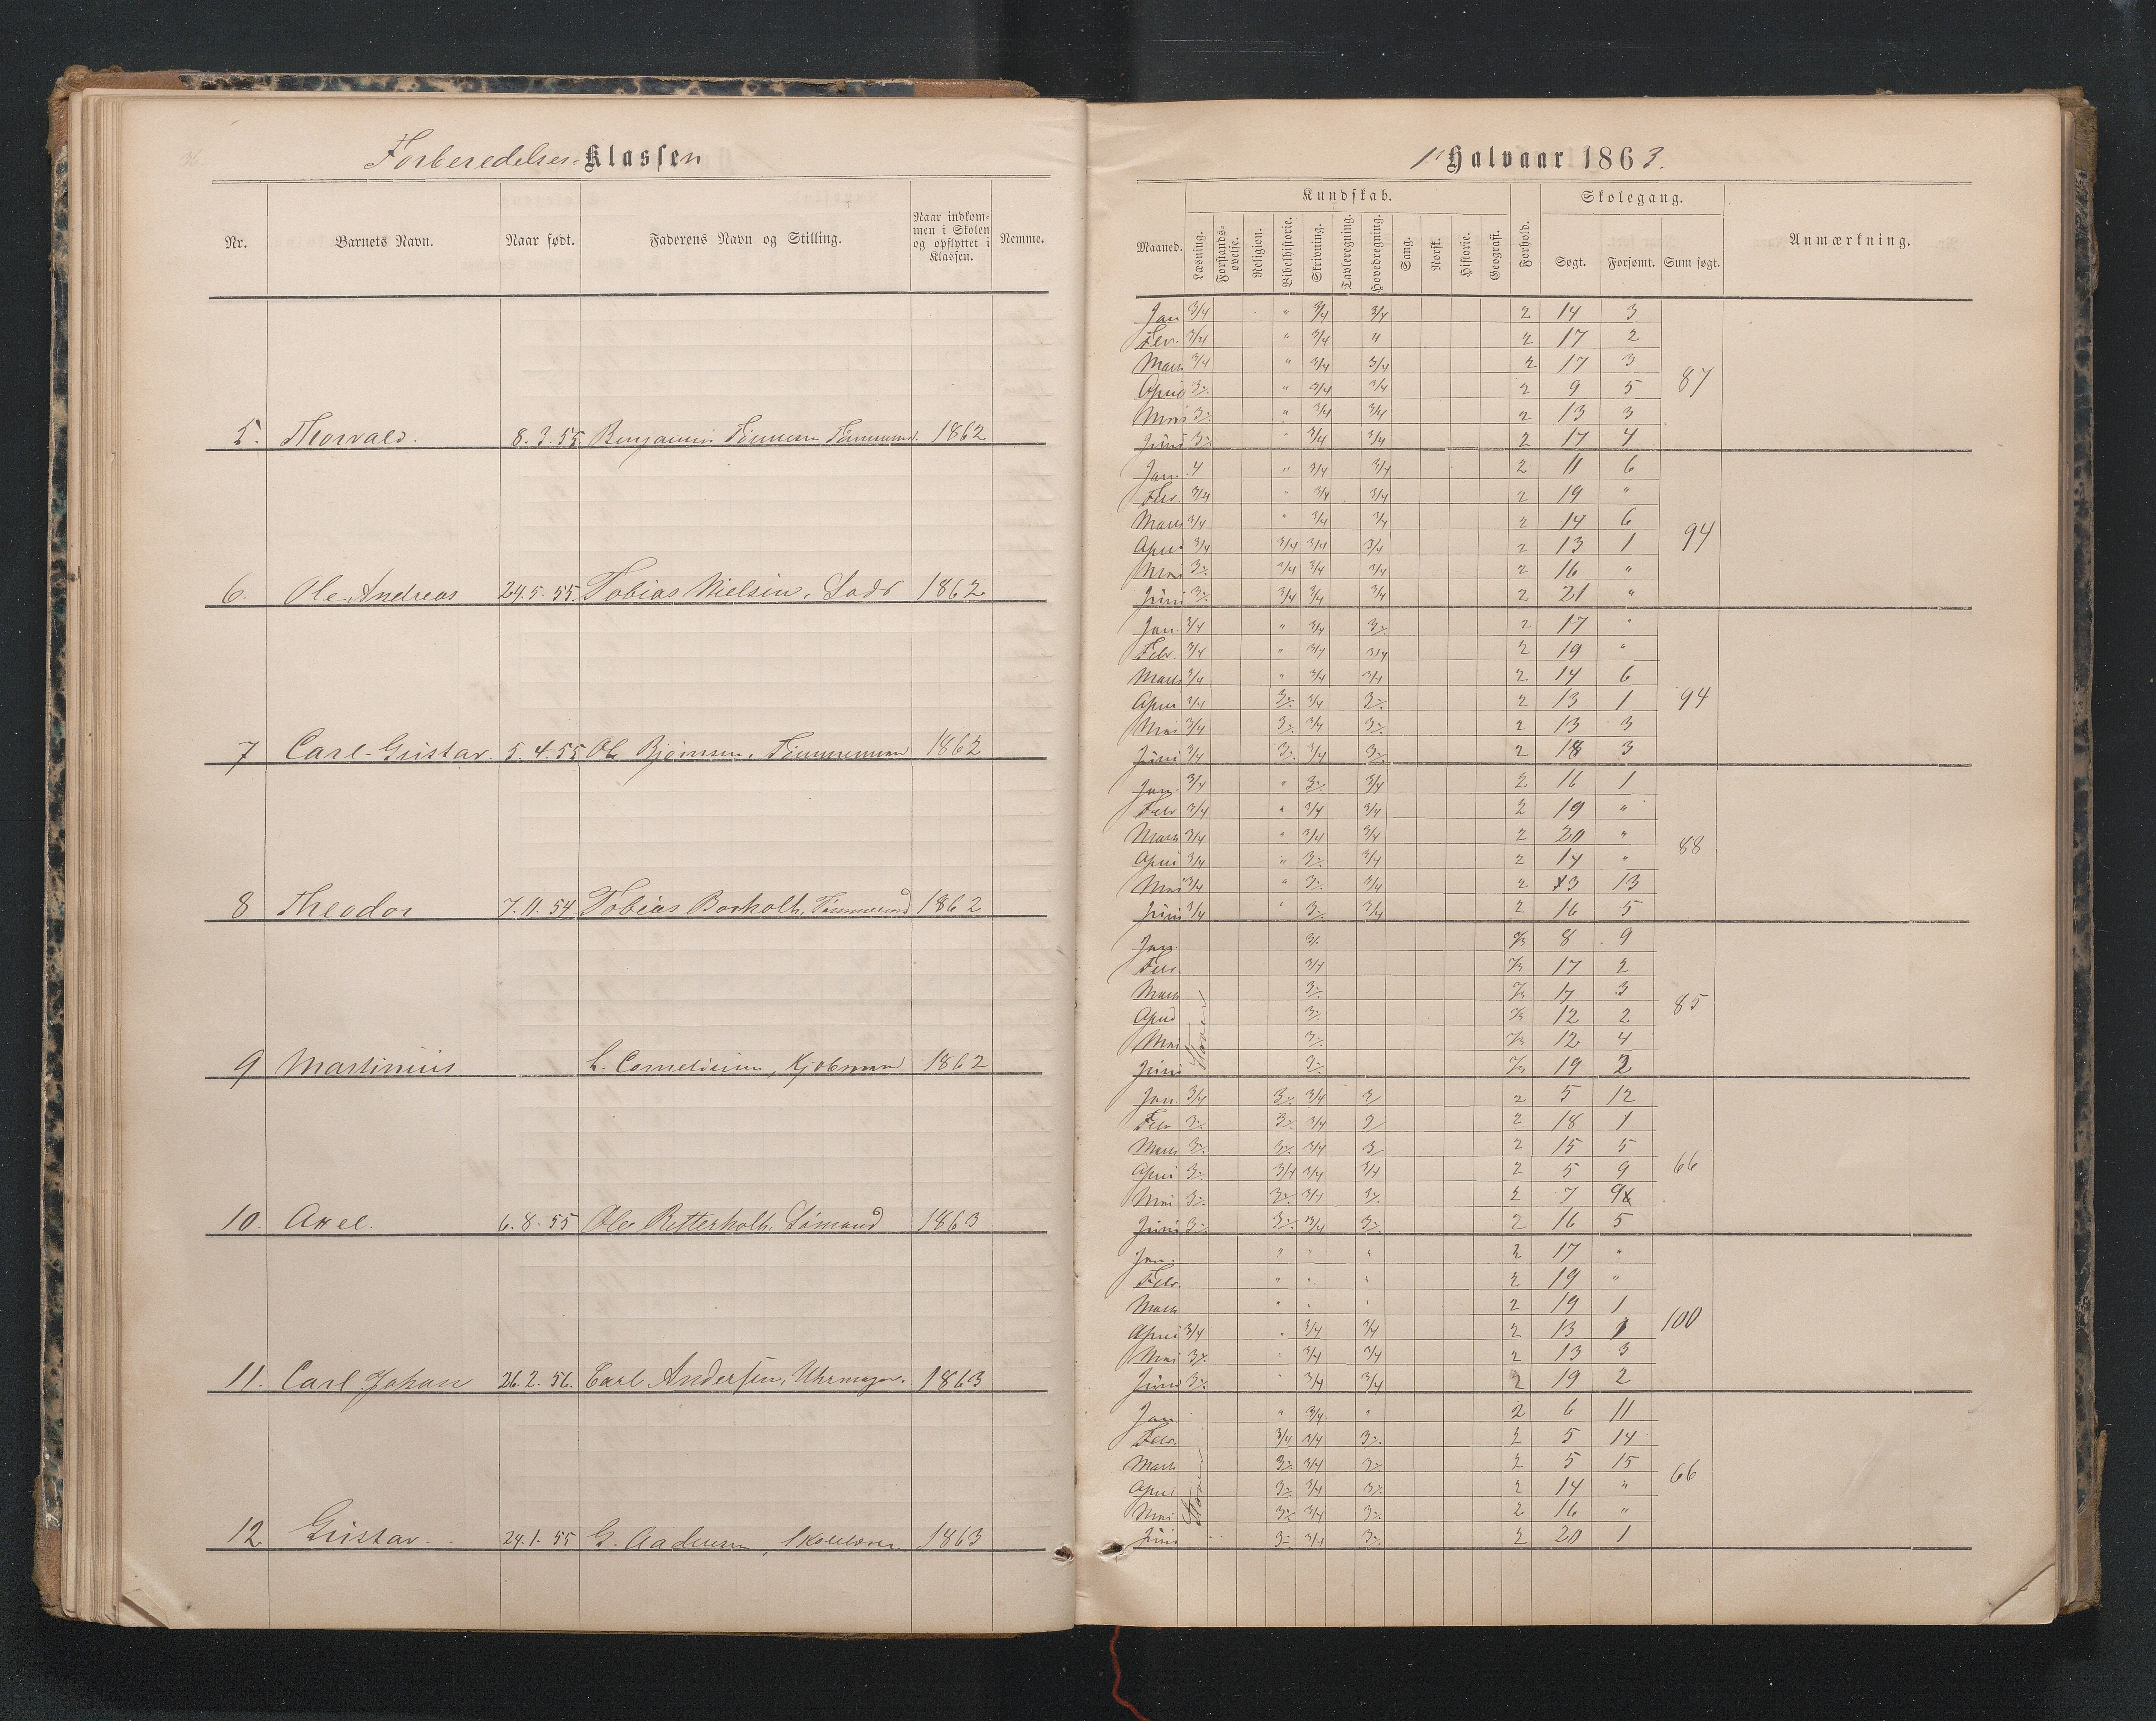 Forberedelses-Klassen
Nr. Barnets Navn. Naar født. Faderens Navn og Stilling. Naar indkommen i Skolen og opflyttet i Klassen. Nemme.
5. Thorvald. 8.3.55 Benjamin 1862
6. Ole Andreas 24.5.55. Tobias Nielsen, Lods 1862
7 Carl Gustav. 5.4.55 Ole Bjørnsen, Tømmermand 1862
8 Theodor 7.11.54. Tobias Borholt, Tømmermand 1862
9 Martinius Kjøbmand 1862
10. Axel. 6.8.55 Ole Retterholt, Sømand 1863
11. Carl Johan 26.2.56. Carl Andersen, Uhrmager. 1863
12 Gustav. 24.1.55 G. Aadnesen, 1863
1ste Halvaar 1863.
Kundskab. Skolegang.
Maaned. Læsning. Forstandsøvelse. Religion. Bibelhistorie. Skrivning. Tavleregning. Hovedregning. Sang. Norsk. Historie. Geografi. Forhold. Søgt. Forsømt. Sum søgt. Anmærkning.
Jan 3/4 " 3/4 3/4 2 14 3
Febr. 3/4 " 3/4 " 2 17 2
Marts 3/4 " 3/4 3/4 2 17 3
April 3 " 3/4 3/4 2 9 5 87
Mai 3 " 3/4 3/4 2 13 3
Juni 3 " 3/4 3/4 2 17 4
Jan. 4 " 3/4 3/4 2 11 6
Febr. 3/4 " 3/4 3/4 2 19 "
Marts 3/4 " 3/4 3/4 2 14 6
April 3/4 3/4 3/4 3/4 2 13 1 94
Mai 3 3/4 3/4 3/4 2 16 "
Juni 3 3/4 3/4 3/4 2 21 "
Jan. 3/4 " 3/4 3 2 17 "
Febr. 3/4 " 3/4 3/4 2 19 "
Marts 3/4 " 3/4 3/4 2 14 6
April 3/4 3 3/4 3 2 13 1 94
Mai 3/4 3 3/4 3 2 13 3
Juni 3/4 3 3/4 3 2 18 3
Jan. 3/4 " 3 3/4 2 16 1
Febr 3/4 " 3/4 3/4 2 19 "
Marts 3/4 " 3/4 3/4 2 20 "
April 3/4 " 3 3/4 2 14 " 88
Mai 3/4 " 3 3/4 2 3 13
Juni 3/4 " 3 3/4 2 16 5
Jan. 3 8 9
Febr. 3/4 17 2
Marts 3 17 3
April 3 12 2 85
Mai 3 12 4
Juni 3 19 2
Staver
Jan. 3/4 3 3/4 3 2 5 12
Febr 3 3 3/4 2 18 1
Marts 3 3 3/4 3 2 15 5
April 3 3/4 3/4 3/4 2 5 9 66
Mai 3 3 3/4 3 2 7 9
Juni 3 3 3/4 3 2 16 5
Jan. " " " 2 17 "
Febr. " " " 2 19 "
Marts " " " 2 19 1
April 3/4 " 3/4 3/4 2 13 1 100
Mai 3 " 3/4 3/4 2 13 3
Juni 3 " 3/4 3/4 2 19 2
Jan " 3/4 " 2 6 11
Febr. 3/4 3/4 3 2 5 14
Marts 3 3/4 3 2 5 15
April 3 3/4 3 2 14 " 66
Mai 3 3/4 3 2 16 "
Juni 3 3/4 3 2 20 1
Staver